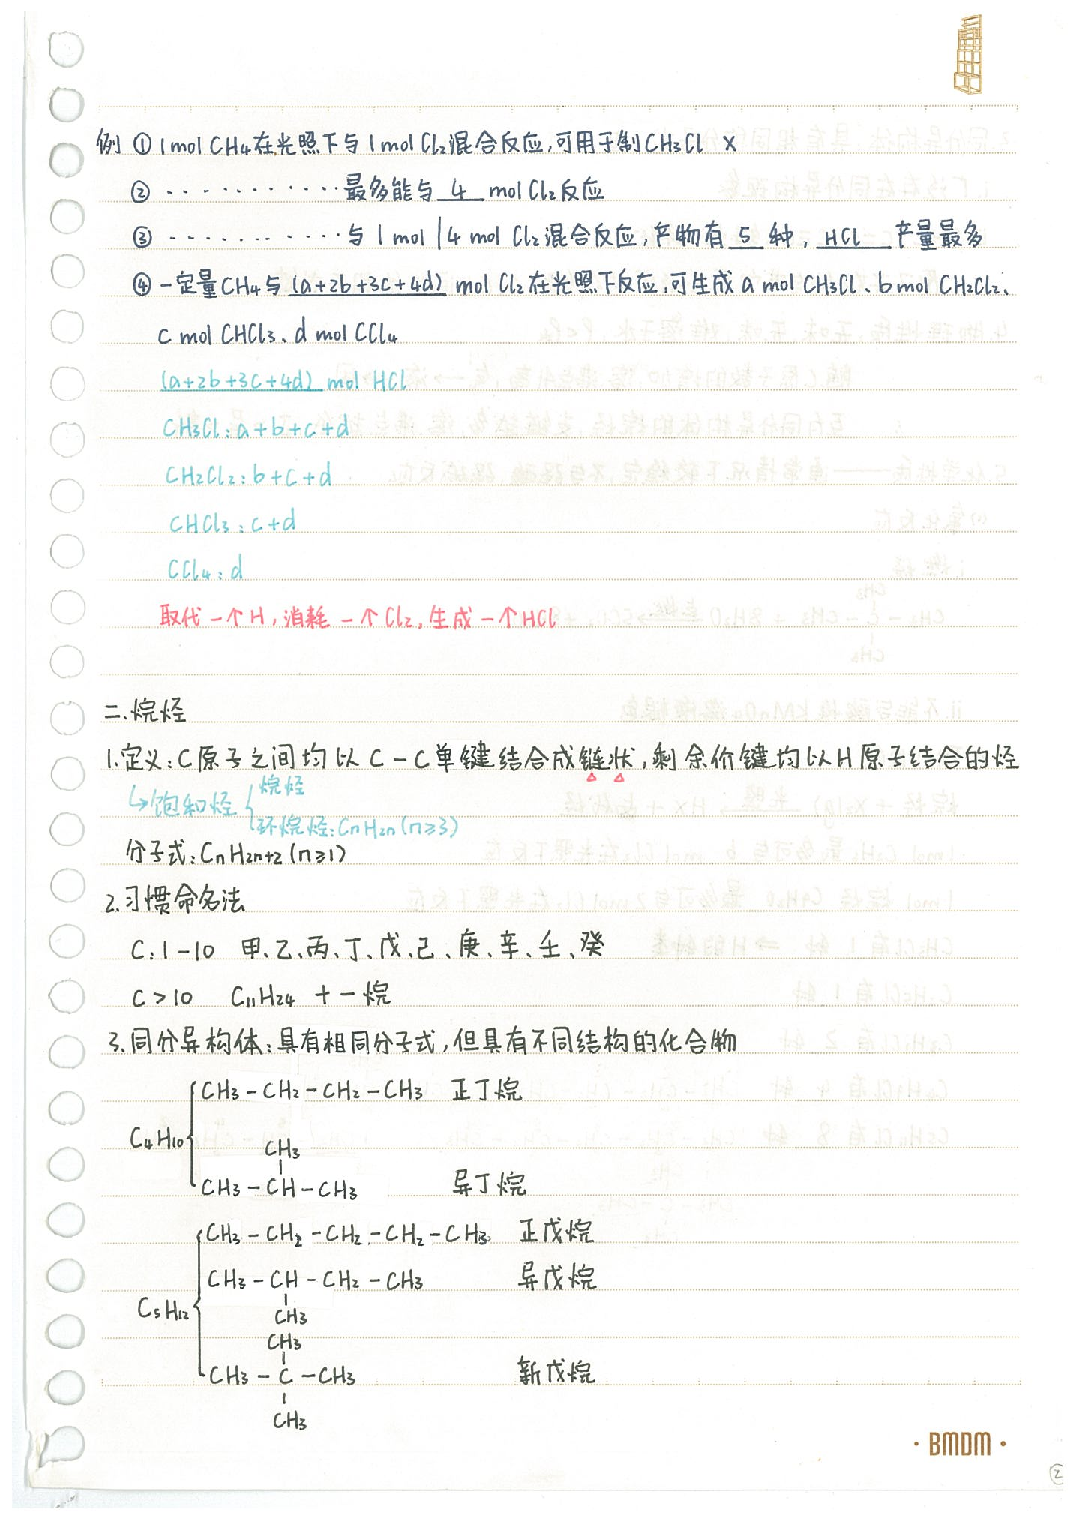 例 ① 1mol CH4在光照下与1mol Cl2混合反应,可用于制CH3Cl ×
② ············最多能与 4 mol Cl2反应
③ ············与1mol/4mol Cl2混合反应,产物有 5 种, HCl 产量最多
④ 一定量CH4与 (a+2b+3c+4d) mol Cl2在光照下反应,可生成a mol CH3Cl、b mol CH2Cl2、
c mol CHCl3、d mol CCl4
(a+2b+3c+4d) mol HCl
CH3Cl:a+b+c+d
CH2Cl2:b+c+d
CHCl3:c+d
CCl4:d
取代一个H,消耗一个Cl2,生成一个HCl
二.烷烃
1.定义:C原子之间均以C-C单键结合成链状,剩余价键均以H原子结合的烃
↳饱和烃{烷烃
环烷烃:CnH2n(n≥3)
分子式:CnH2n+2(n≥1)
2.习惯命名法
C:1-10 甲、乙、丙、丁、戊、己、庚、辛、壬、癸
C>10 C11H24 十一烷
3.同分异构体:具有相同分子式,但具有不同结构的化合物
CH3-CH2-CH2-CH3 正丁烷
C4H10
CH3
CH3-CH-CH3 异丁烷
CH3-CH2-CH2-CH2-CH3 正戊烷
CH3-CH-CH2-CH3 异戊烷
C5H12
CH3
CH3
CH3-C-CH3 新戊烷
CH3
·BMDM·
②